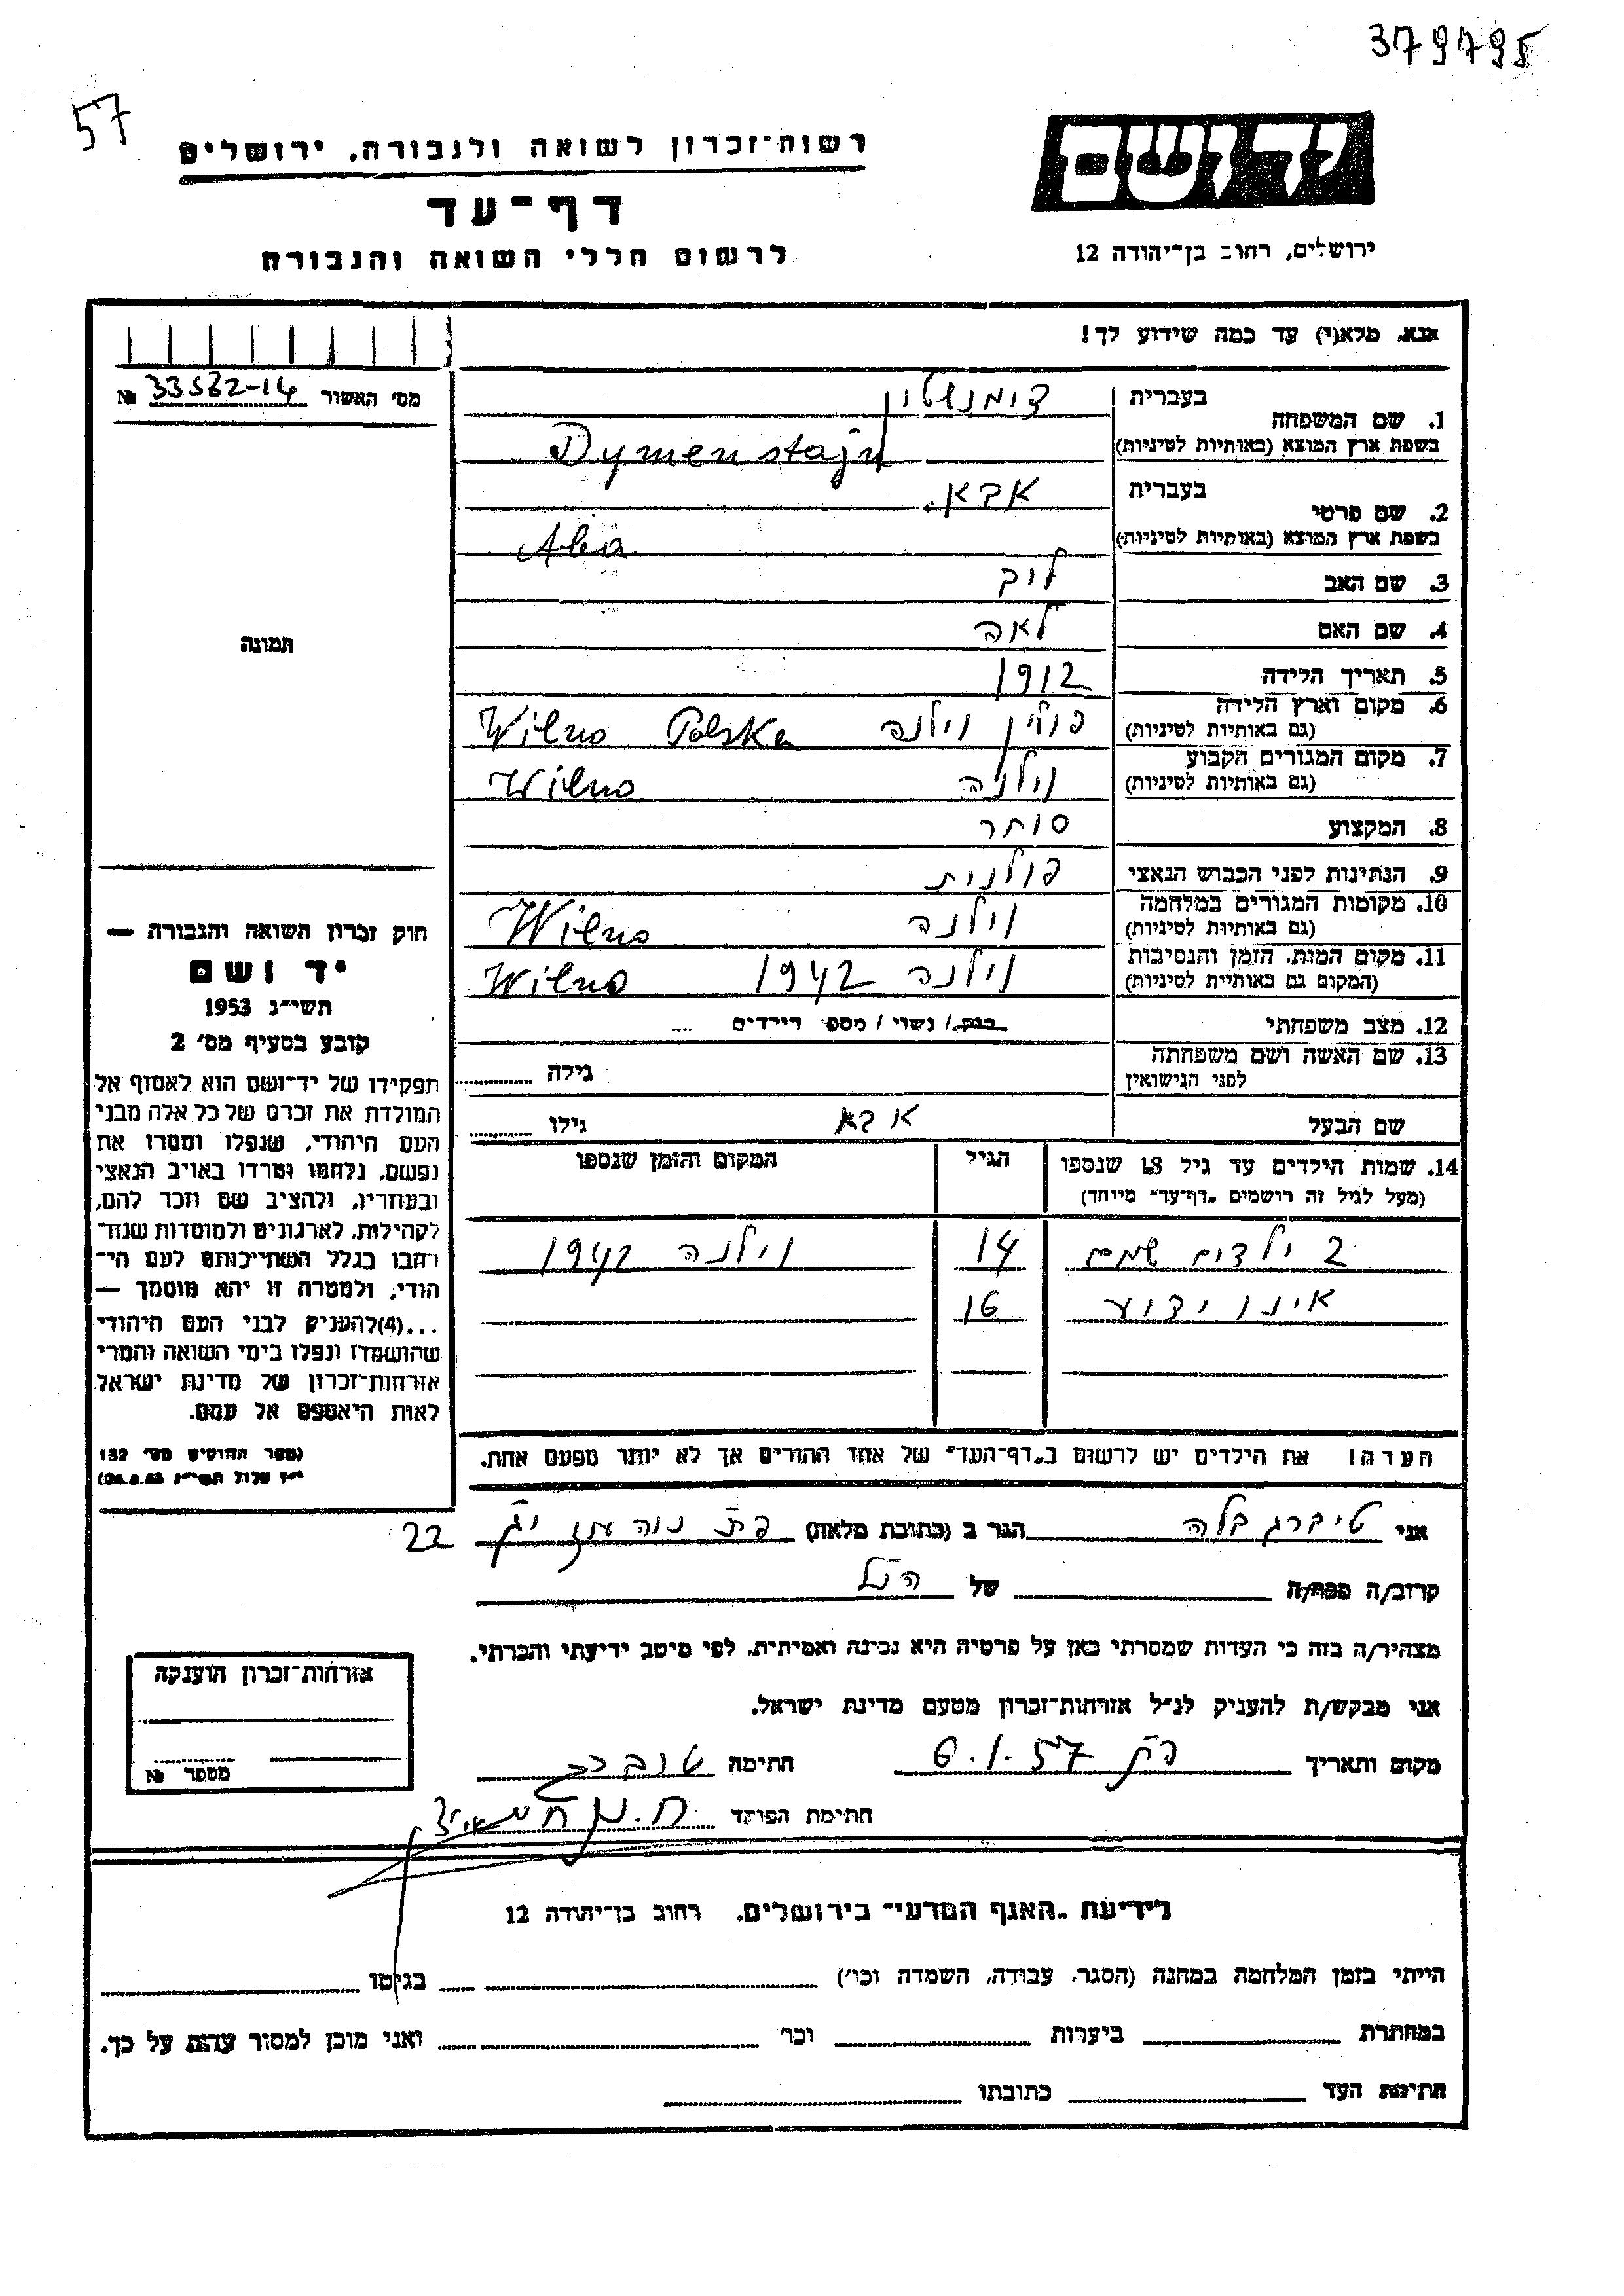 379795
57
יד ושם
ירושלים, רחוב בן־יהודה 12
רשות־זכרון לשואה ולגבורה, ירושלים
דף־עד
לרשום חללי השואה והגבורה
אנא, מלא(י) עד כמה שידוע לך!
מס' האשור 33532-14 №
1. שם המשפחה בעברית דימנשטין
בשפת ארץ המוצא (באותיות לטיניות) Dymenstajn
2. שם פרטי בעברית אבא
בשפת ארץ המוצא (באותיות לטיניות) Aba
3. שם האב ליב
4. שם האם לאה
תמונה
5. תאריך הלידה 1912
6. מקום וארץ הלידה פולין וילנה Wilno Polska
(גם באותיות לטיניות)
7. מקום המגורים הקבוע וילנה Wilno
(גם באותיות לטיניות)
8. המקצוע סוחר
9. הנתינות לפני הכבוש הנאצי פולנית
10. מקומות המגורים במלחמה וילנה Wilno
(גם באותיות לטיניות)
11. מקום המות, הזמן והנסיבות וילנה 1942 Wilno
(המקום גם באותיות לטיניות)
12. מצב משפחתי רווק/ נשוי/ מספר הילדים ....
13. שם האשה ושם משפחתה גילה
לפני הנישואין
שם הבעל אבא גילו
14. שמות הילדים עד גיל 18 שנספו הגיל המקום והזמן שנספו
(מעל לגיל זה רושמים „דף־עד" מיוחד)
2 ילדים שמם 14 וילנה 1942
אינו ידוע 16
הערה! את הילדים יש לרשום ב„דף־העד" של אחד ההורים אך לא יותר מפעם אחת.
חוק זכרון השואה והגבורה —
יד ושם
תשי״ג 1953
קובע בסעיף מס' 2
תפקידו של יד־ושם הוא לאסוף אל
המולדת את זכרם של כל אלה מבני
העם היהודי, שנפלו ומסרו את
נפשם, נלחמו ומרדו באויב הנאצי
ובעוזריו, ולהציב שם וזכר להם,
לקהילות, לארגונים ולמוסדות שנח־
רבו בגלל השתייכותם לעם הי־
הודי; ולמטרה זו יהא מוסמך —
...(4)להעניק לבני העם היהודי
שהושמדו ונפלו בימי השואה והמרי
אזרחות־זכרון של מדינת ישראל
לאות היאספם אל עמם.
(ספר החוקים מס' 132
י״ז אלול תשי״ג 28.8.53)
אני טיברג בלה הגר ב (כתובת מלאה) פת נוה עוז יג 22
קרוב/ה מכר/ה של הנ״ל
מצהיר/ה בזה כי העדות שמסרתי כאן על פרטיה היא נכונה ואמיתית, לפי מיטב ידיעתי והכרתי.
אני מבקש/ת להעניק לנ״ל אזרחות־זכרון מטעם מדינת ישראל.
מקום ותאריך פת 6.1.57 חתימה
חתימת הפוקד
אזרחות־זכרון הוענקה
מספר №
לידיעת „האגף המדעי" בירושלים, רחוב בן־יהודה 12
הייתי בזמן המלחמה במחנה (הסגר, עבודה, השמדה וכו') בגיטו
במחתרת ביערות וכו' ואני מוכן למסור עדות על כך.
חתימת העד כתובתו